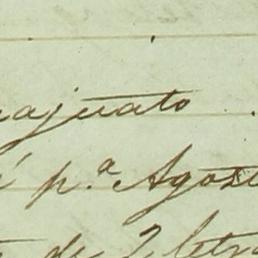 najuato
p.ª Agost
de 2 letra